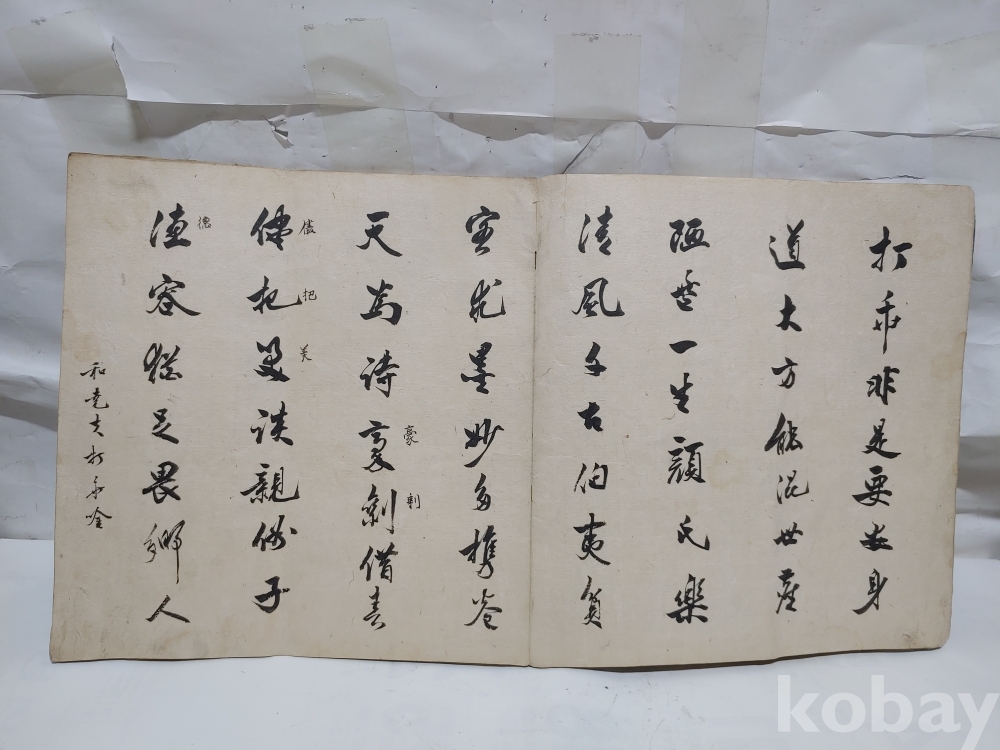 打乖非是要安身
道大方能混世塵
陋巷一生顏氏樂
清風千古伯夷貧
客求墨妙多携卷
豪剩
天為詩豪剩借春
儘把笑
儘把笑談親俗子
德
德容猶足畏鄉人
和堯夫打乖吟
kobay